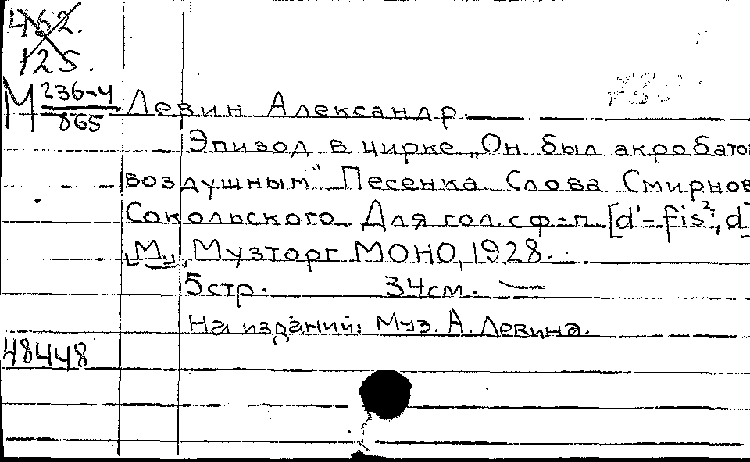 462.
125.
М 236-4
865
Левин Александр
Эпизод в цирке „Он был акробатом
воздушным". Песенка. Слова Смирнов
Сокольского. Для гол. с ф-п. [d'-fis², d]
„М.", Музторг МОНО, 1928.
5 стр. 34 см. —
На издании: Муз. А. Левина.
48448